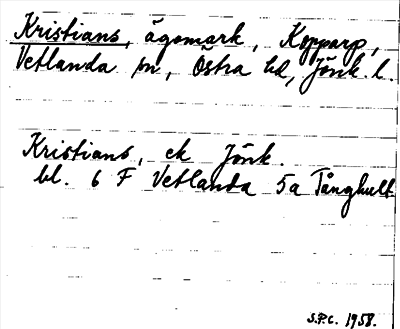 Kristians, ägomark, Kopparp,
Vetlanda sn, Östra hd, Jönk. l.
Kristians, ek Jönk.
bl. 6 F Vetlanda 5a Tånghult
S.P.C. 1958.